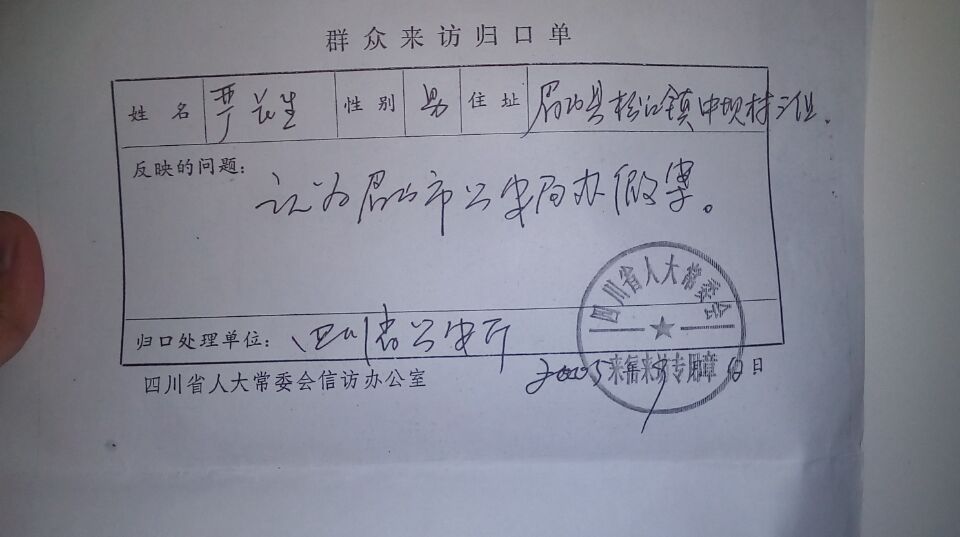 群众来访归口单
姓名 严长生 性别 男 住址 眉山县松江镇中坝村三组.
反映的问题:
认为眉山市公安局办假案。
归口处理单位: 四川省公安厅
四川省人大常委会
来信来访专用章
四川省人大常委会信访办公室 年 月 日